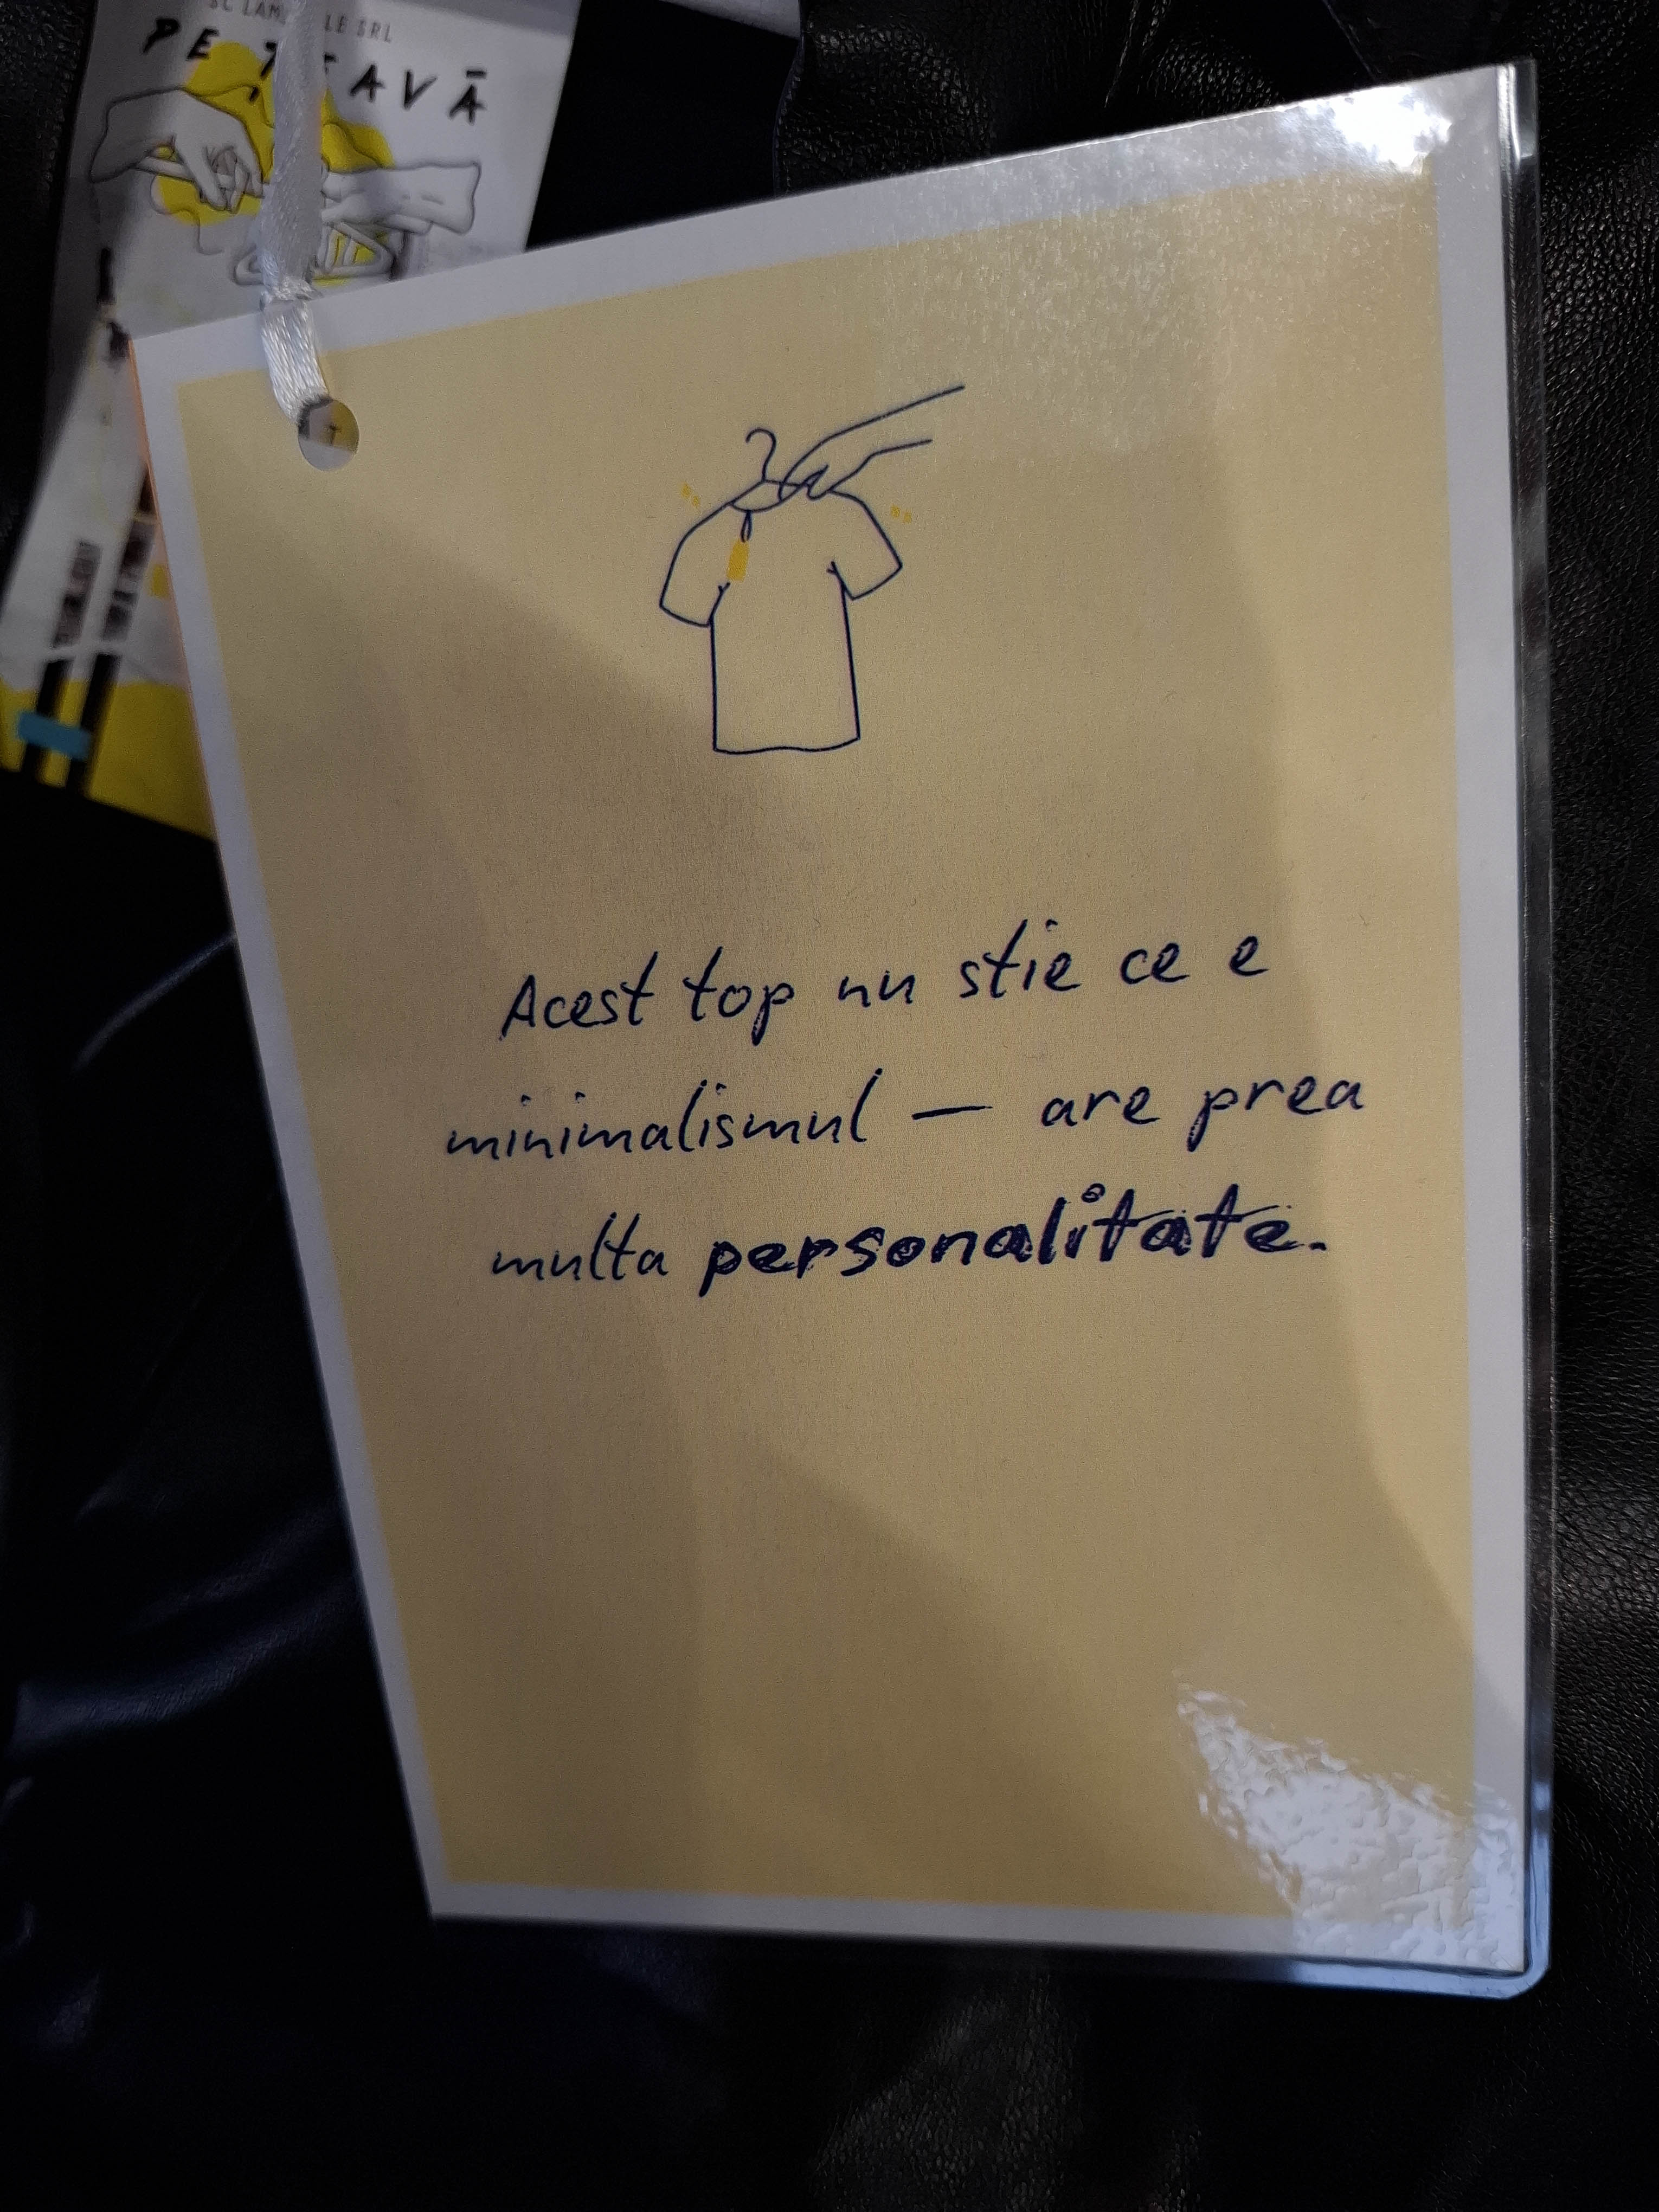 PE T AVĂ
Acest top nu stie ce e
minimalismul — are prea
multa personalitate.